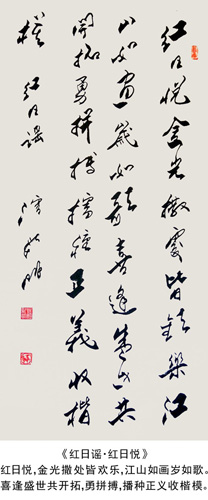 红日悦金光撒處皆歡樂江
山如畫歲如歌喜逢盛世共
開拓勇拼搏播種正義收楷
模 红日謡
《红日谣·红日悦》
红日悦,金光撒处皆欢乐,江山如画岁如歌。
喜逢盛世共开拓,勇拼搏,播种正义收楷模。